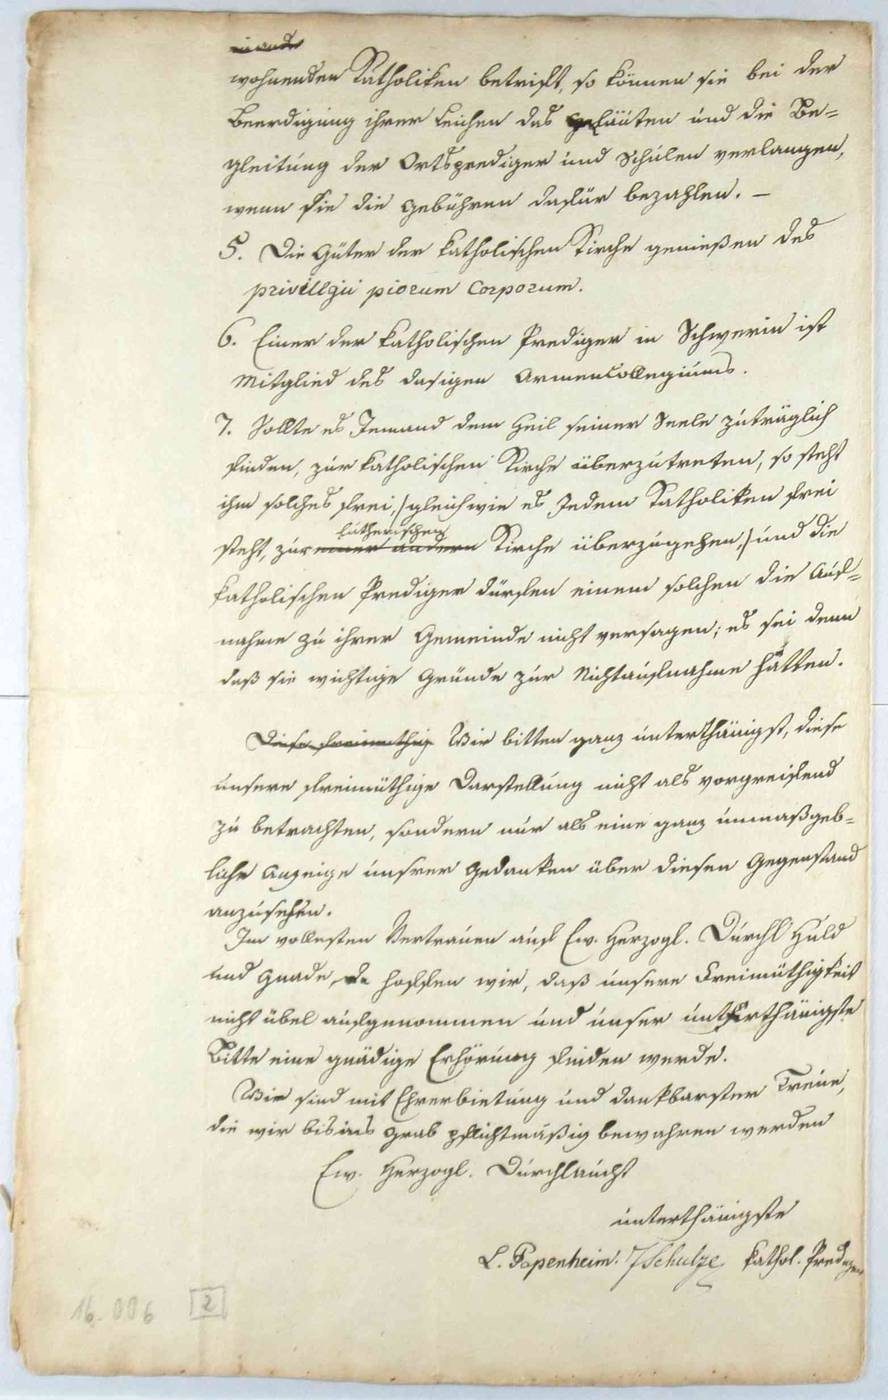 wohnenden Katholiken betrifft, so können sie bei der
Beerdigung ihrer Leichen das Geläuten und die Be-
gleitung der Ortsprediger und Schulen verlangen,
wenn sie die Gebühren dafür bezahlen. –
5. Die Güter der katholischen Kirche genießen des
privilegii piorum Corporum.
6. Einer der katholischen Prediger in Schwerin ist
Mitglied des dasigen Armencollegiums.
7. Sollte es Jemand dem Heil seiner Seele zuträglich
finden, zur katholischen Kirche überzutreten, so steht
ihm solches frei, /gleichwie es Jedem Katholiken frei
lutherischen
steht, zur einer andern Kirche überzugehen,/ und die
katholischen Prediger dürfen einem solchen die Auf-
nahme zu ihrer Gemeinde nicht versagen; es sei denn
daß sie wichtige Gründe zur Nichtaufnahme hätten.
Diese freimüthig Wir bitten ganz unterthänigst, diese
unsere freimüthige Darstellung nicht als vorgreifend
zu betrachten, sondern nur als eine ganz unmaßgeb-
liche Anzeige unsrer Gedanken über diesen Gegenstand
anzusehen.
Im vollesten Vertrauen auf Ew. Herzogl. Durchl Huld
und Gnade, hoffen wir, daß unsere Freimüthigkeit
nicht übel aufgenommen und unser unterthänigste
Bitte eine gnädige Erhörung finden werde.
Wir sind mit Ehrerbietung und dankbarster Treue,
die wir bis ins Grab pflichtmäßig bewahren werden
Ew. Herzogl. Durchlaucht
unterthänigste
L. Papenheim. J Schulze kathol. Prediger
16. 006 2